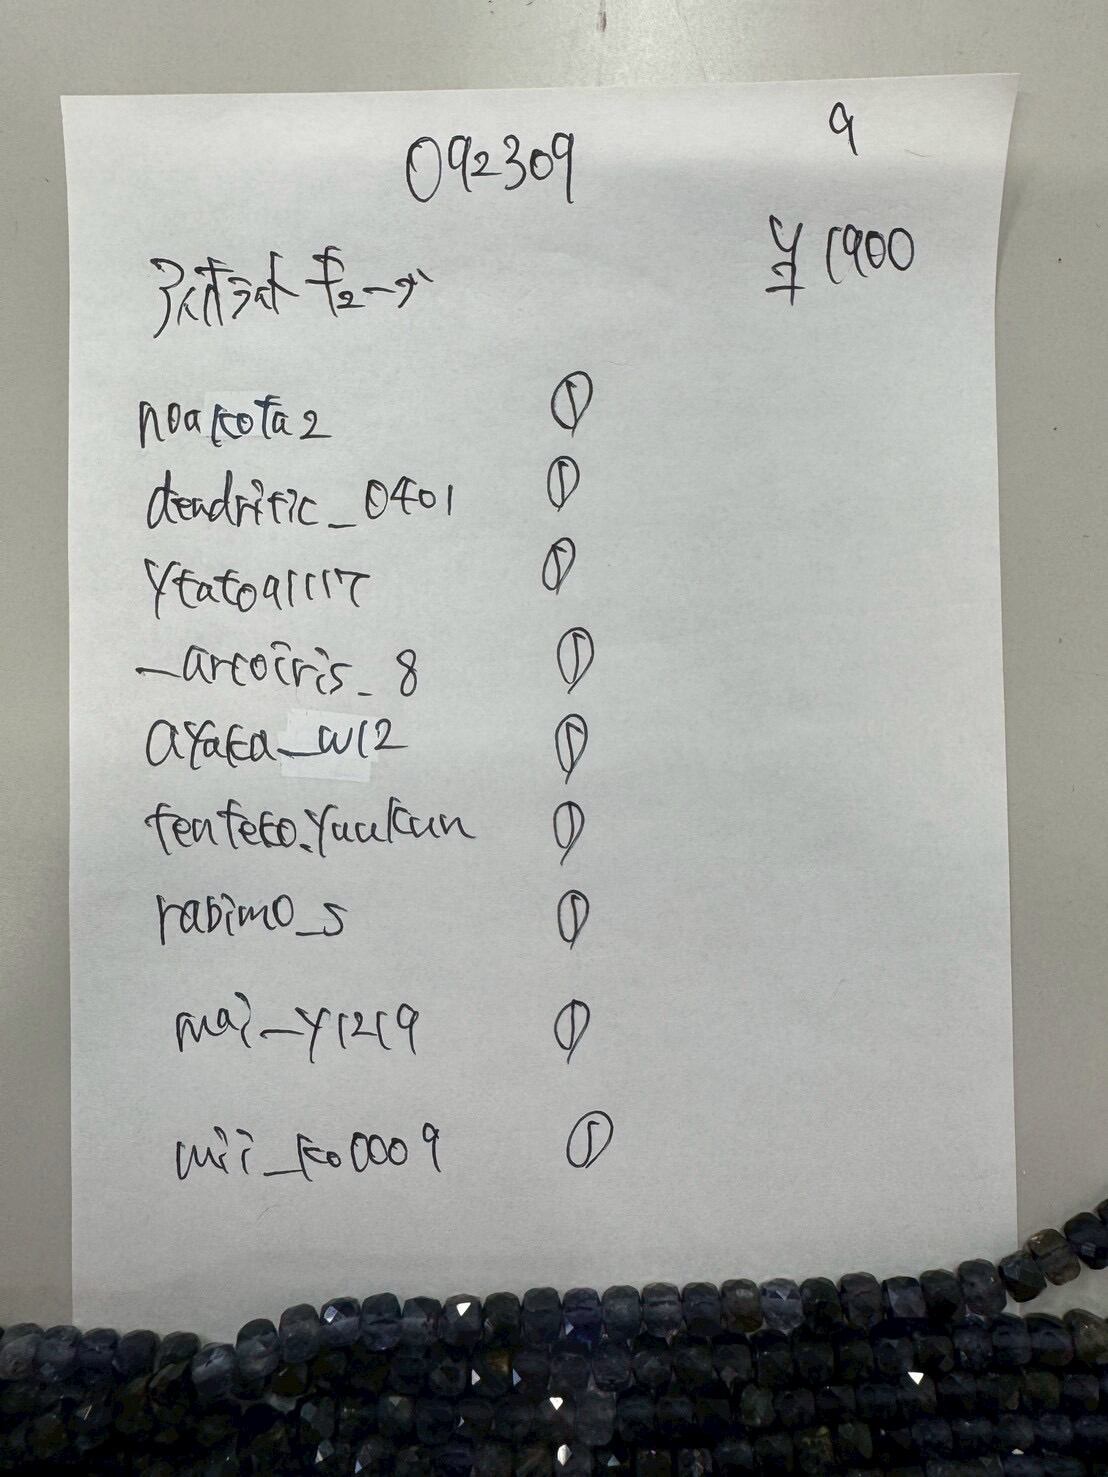 092309
9
アイオライト キューブ
¥1900
noakota2 ①
dendritic_0401 ①
ytato91117 ①
_arcoiris_8 ①
ayaka_w12 ①
tenteko.yuukun ①
rabimo_s ①
mai_y1219 ①
mii_ko0009 ①